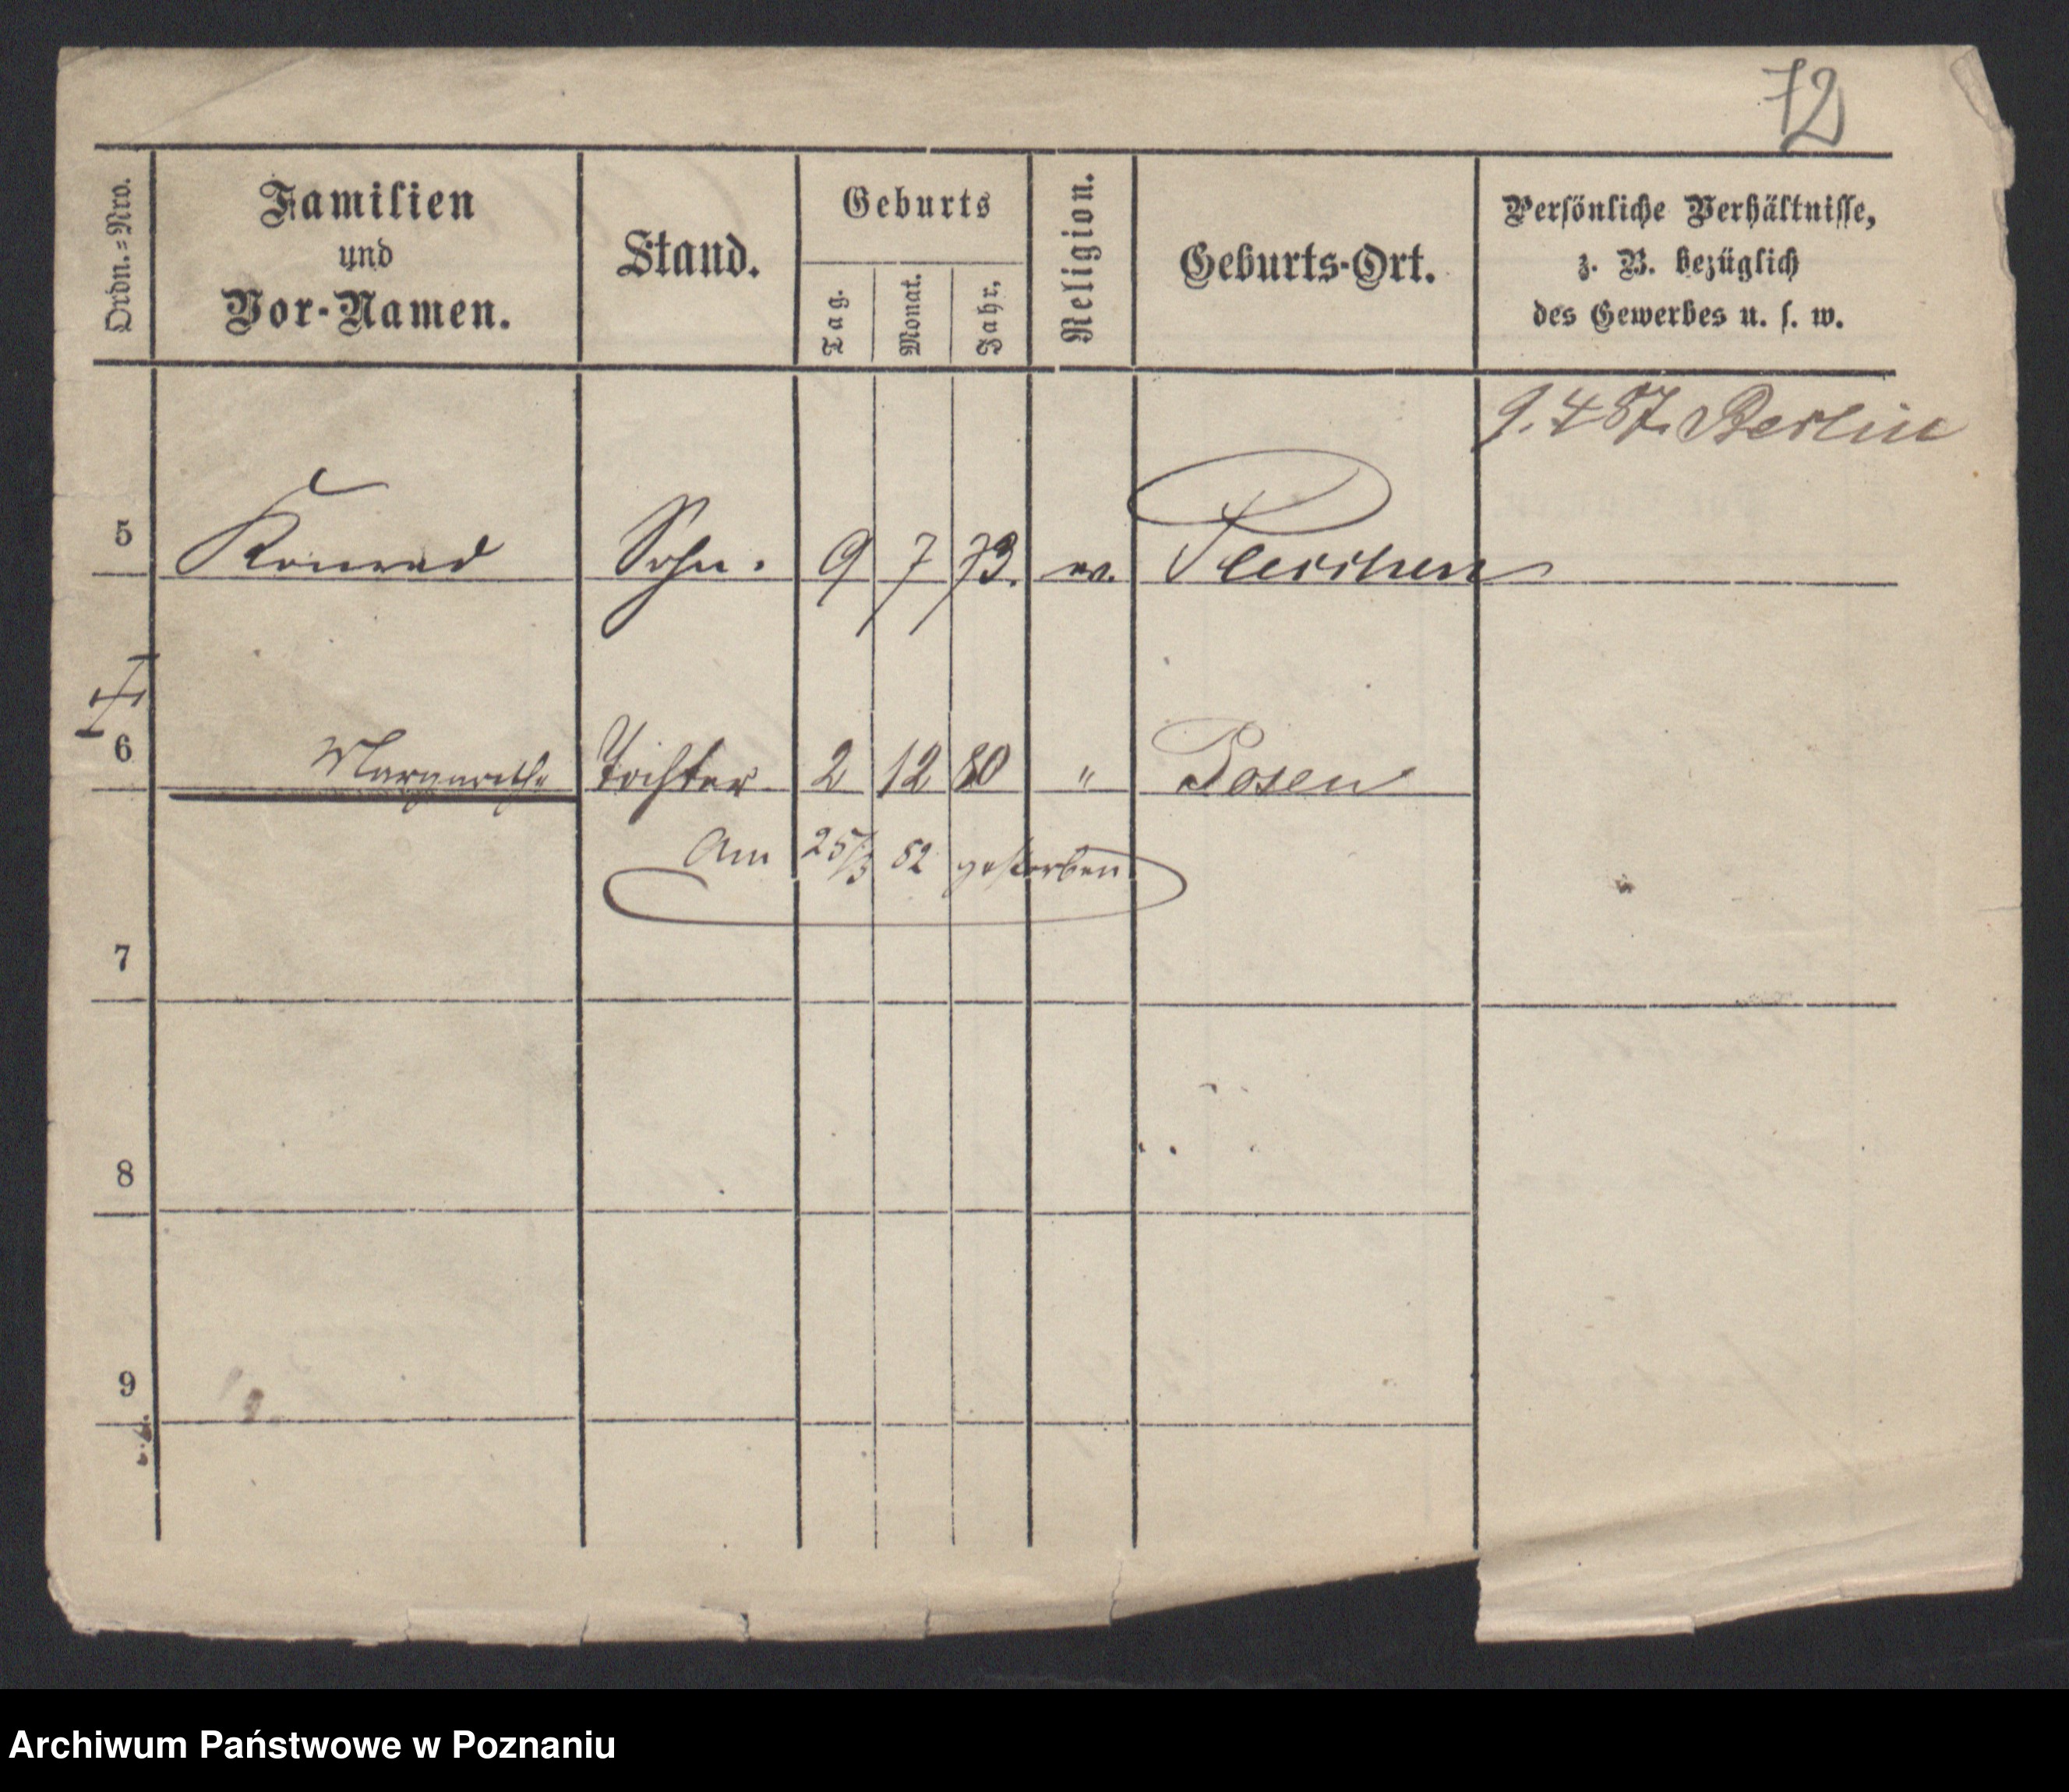 72
Ordn.=Nro.
Familien
und
Vor-Namen.
Stand.
Geburts
Tag.
Monat.
Jahr.
Religion.
Geburts-Ort.
Persönliche Verhältnisse,
z. B. bezüglich
des Gewerbes u. s. w.
9.4 87. Berlin
5 Konrad Sohn. 9 7 73. ev. Pleschen
6 Margarethe Tochter 2 12 80 " Posen
Am 25/3 82 gestorben
7
8
9
Archiwum Państwowe w Poznaniu